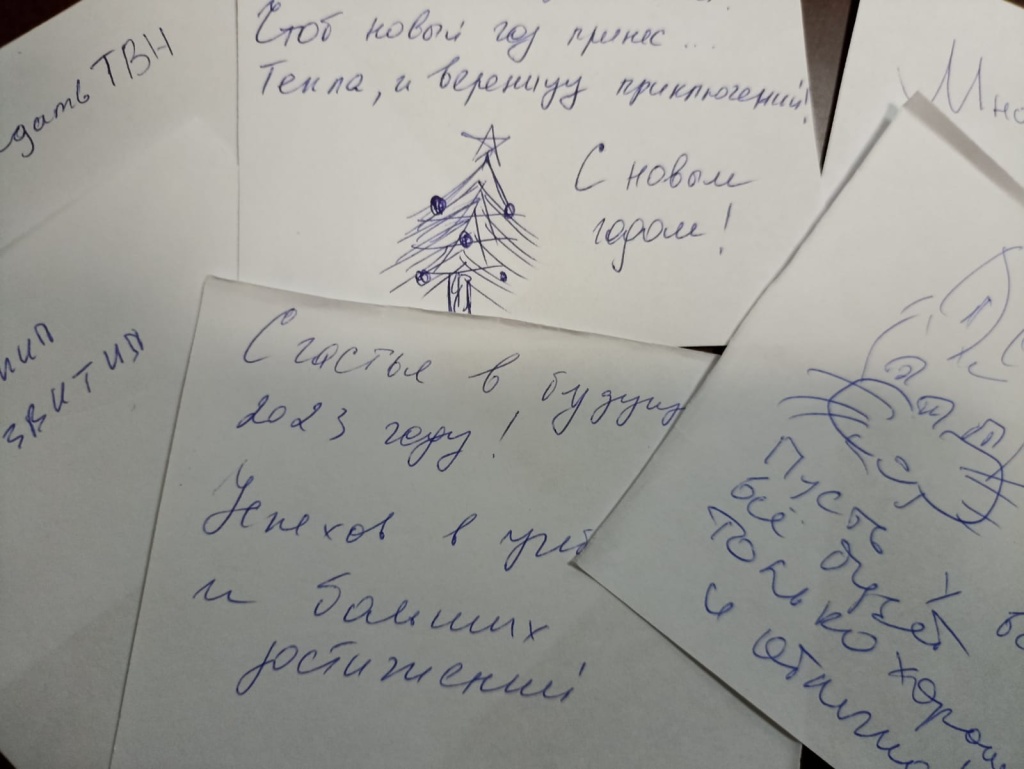 дать ТВН
Чтоб новый год принес...
Тепла, и вереницу приключений!
С новым
годом!
Счастья в будущ
2023 году!
Успехов в учёб
и больших
достижений
Пусть
всё будет
только хорош
и отлично